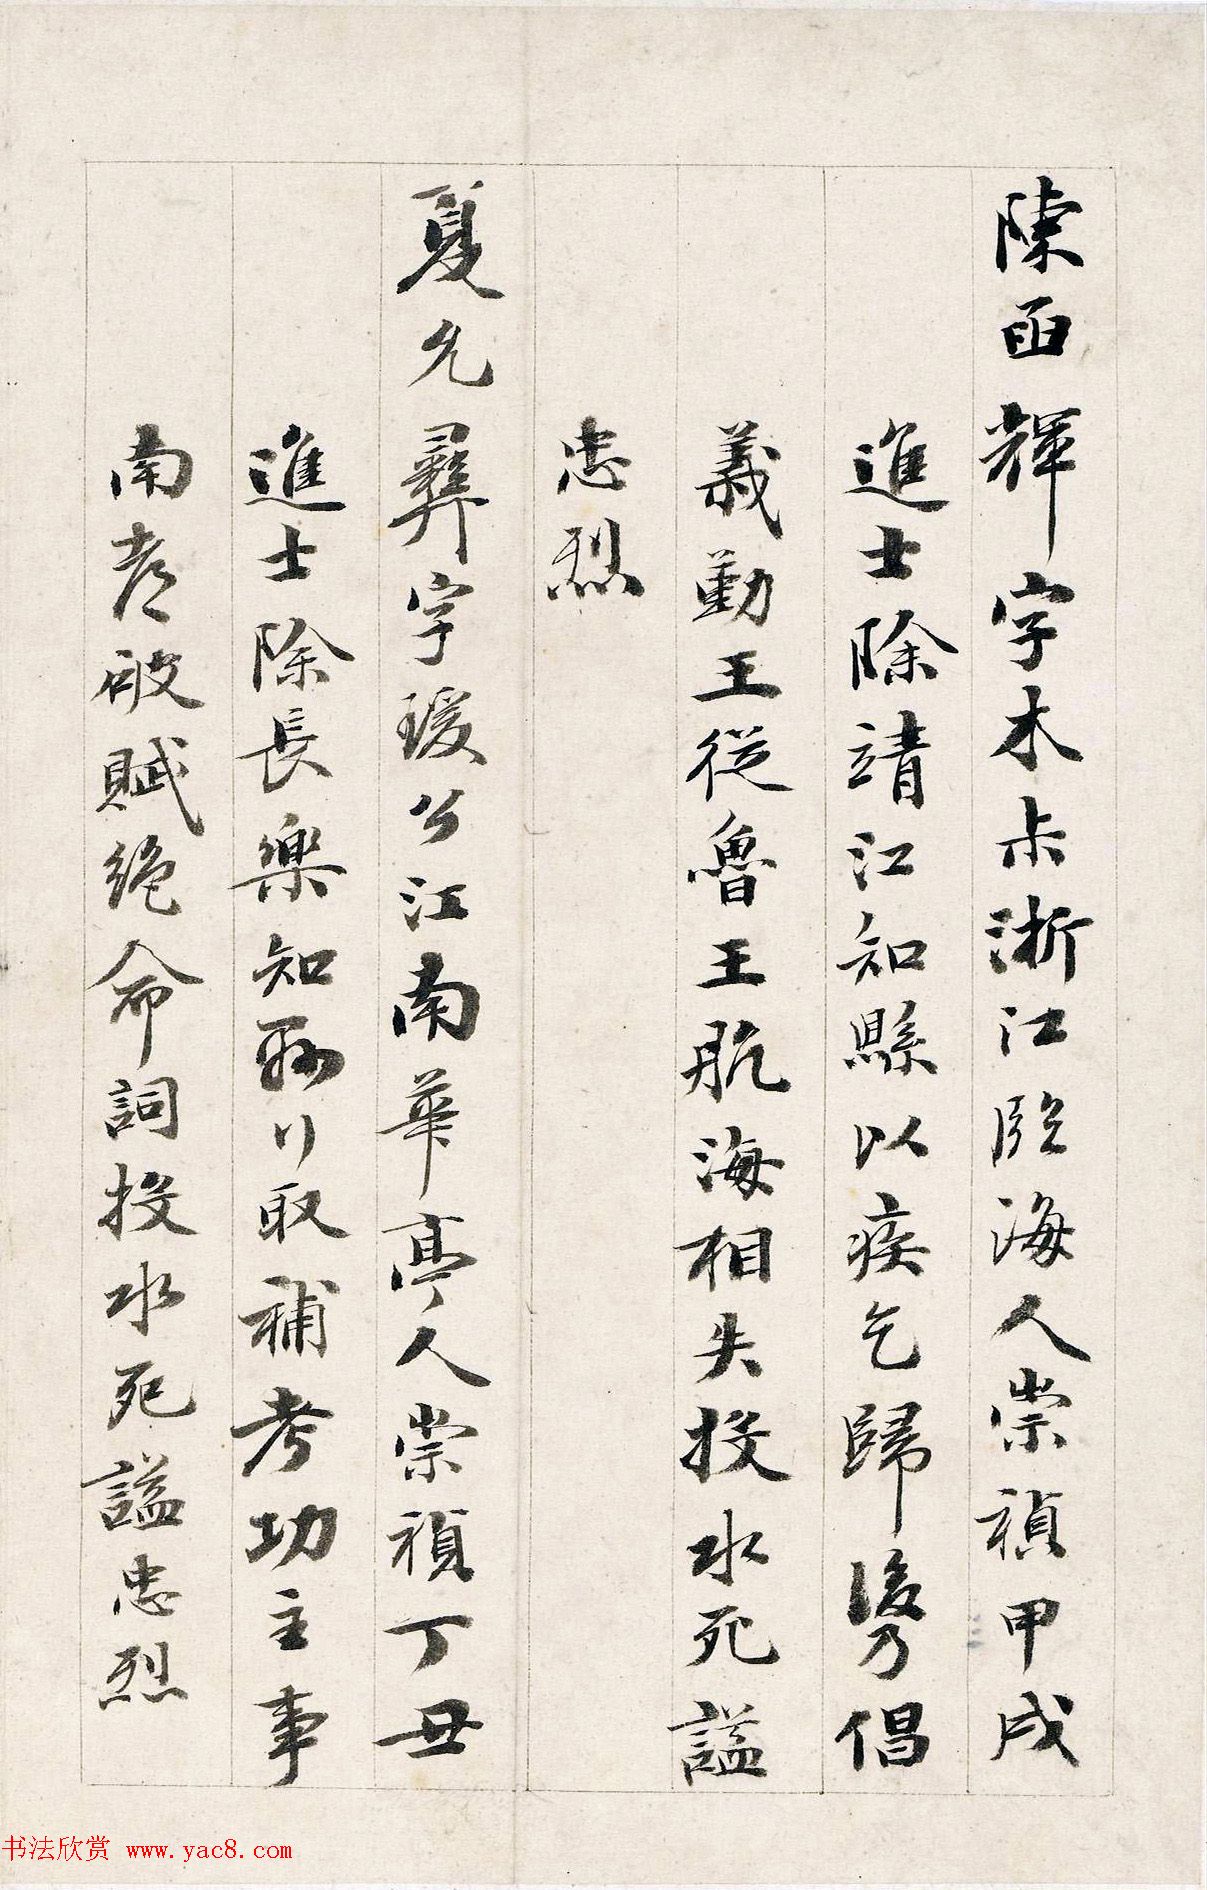 陳函輝字木叔浙江臨海人崇禎甲戌
進士除靖江知縣以疾乞歸後乃倡
義勤王從魯王航海相失投水死謚
忠烈
夏允彝字瑗公江南華亭人崇禎丁丑
進士除長樂知縣行取補考功主事
南都破賦絕命詞投水死謚忠烈
书法欣赏 www.yac8.com